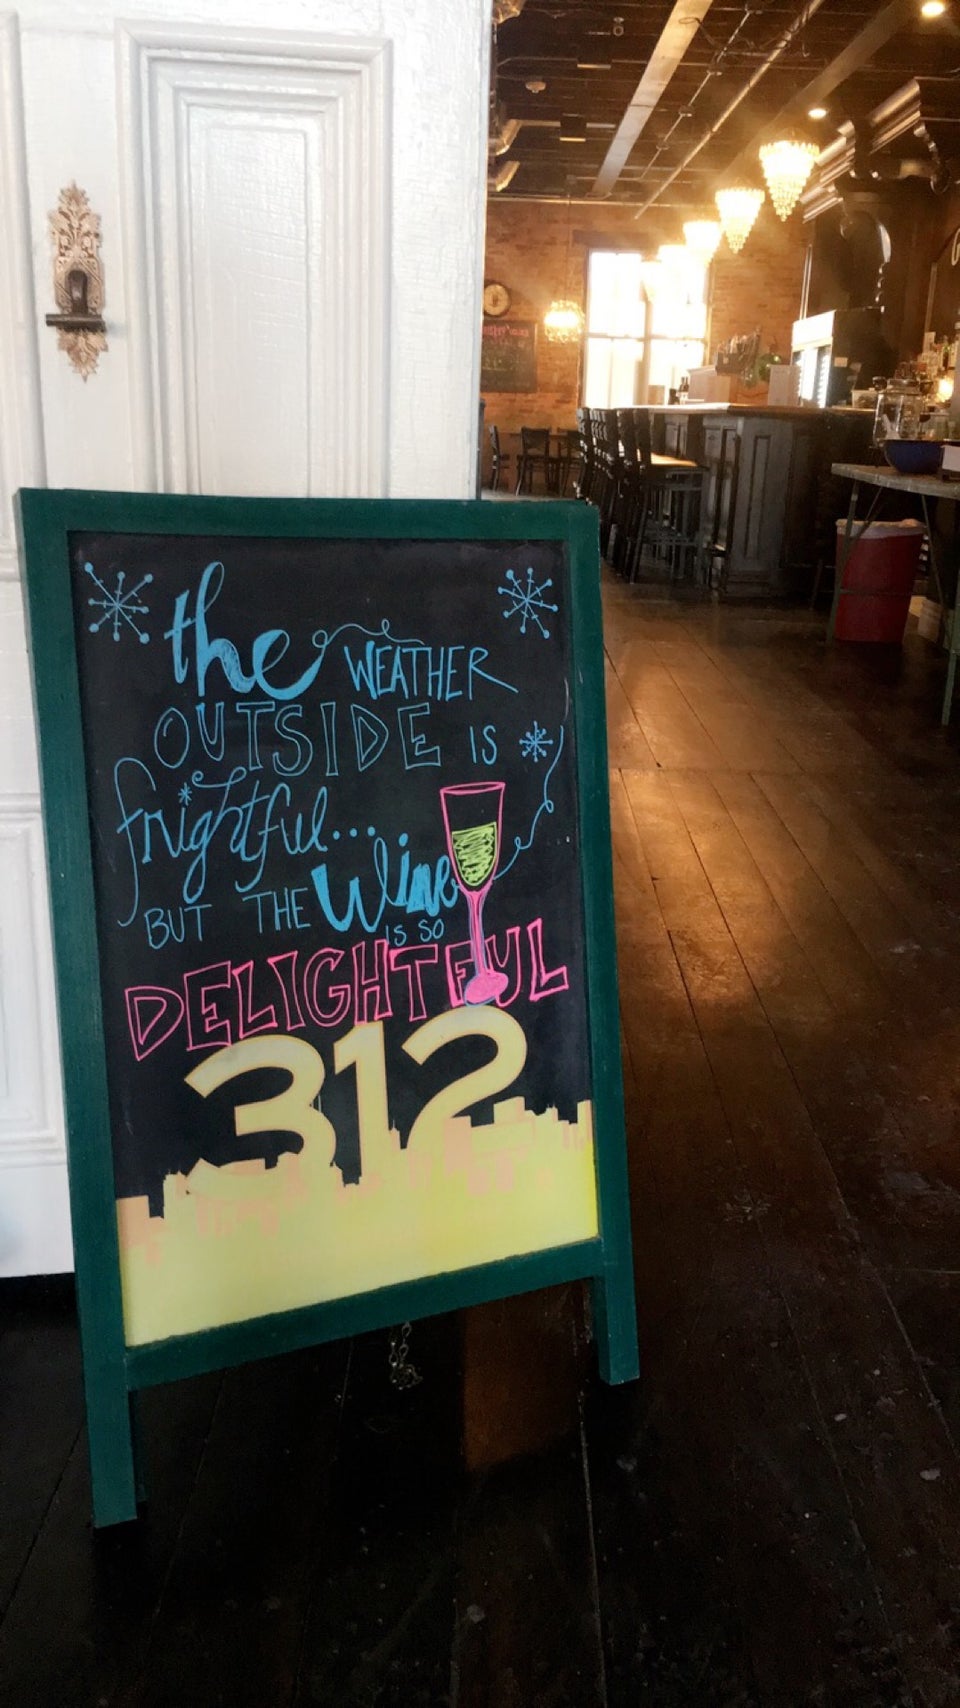 the WEATHER
OUTSIDE IS
frightful...
BUT THE Wine
IS SO
DELIGHTFUL
312